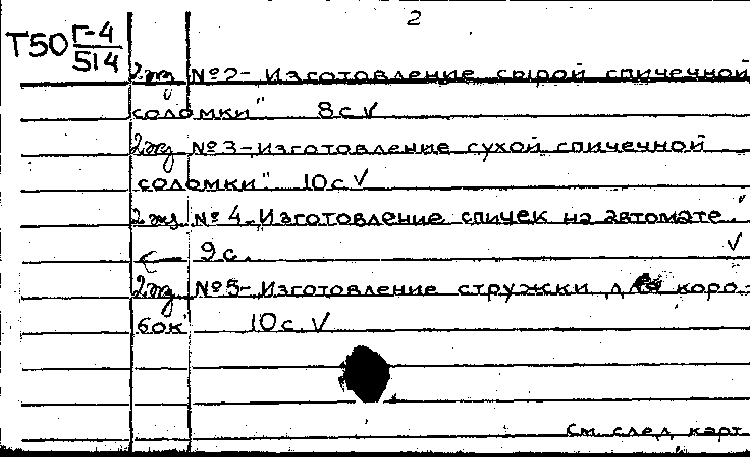 2
Т50 Г-4/514
2 экз №2- Изготовление сырой спичечной
соломки" 8с √
2 экз №3-Изготовление сухой спичечной
соломки". 10с √
2 экз №4-Изготовление спичек на автомате."
← 9с. √
2 экз №5-Изготовление стружски для коро-
бок 10с. √
См. след. карт